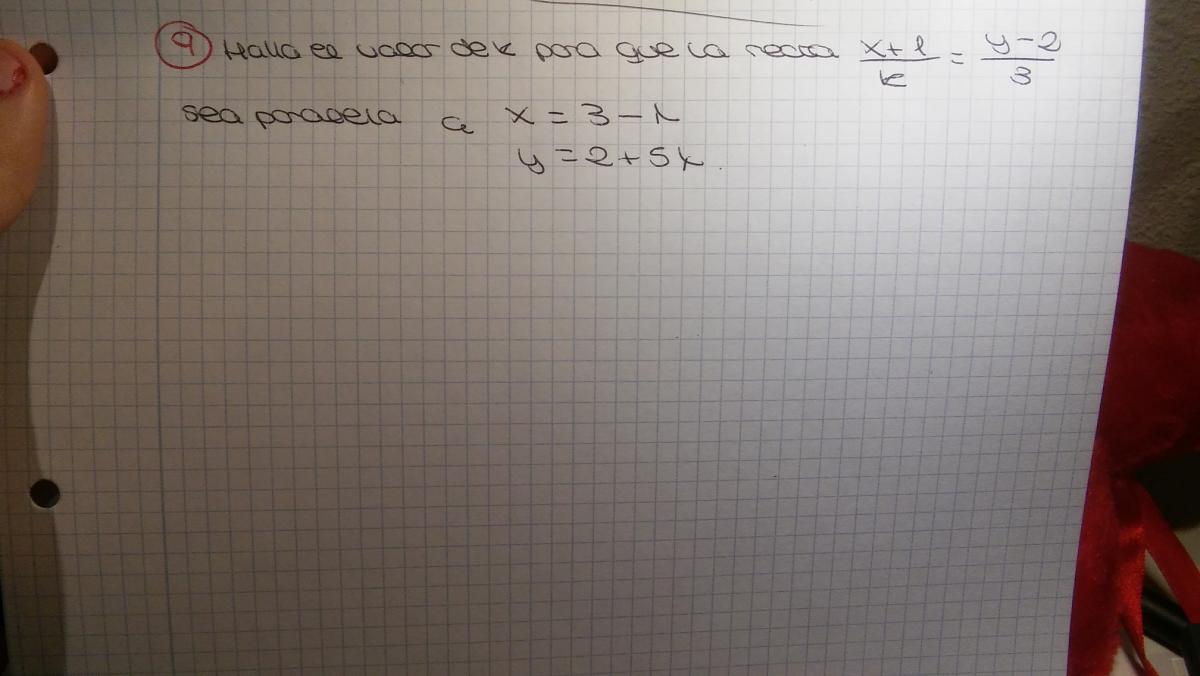 9 Halla el valor de k para que la recta x+1/k = y-2/3
sea paralela a x = 3 - λ
y = 2 + 5λ.